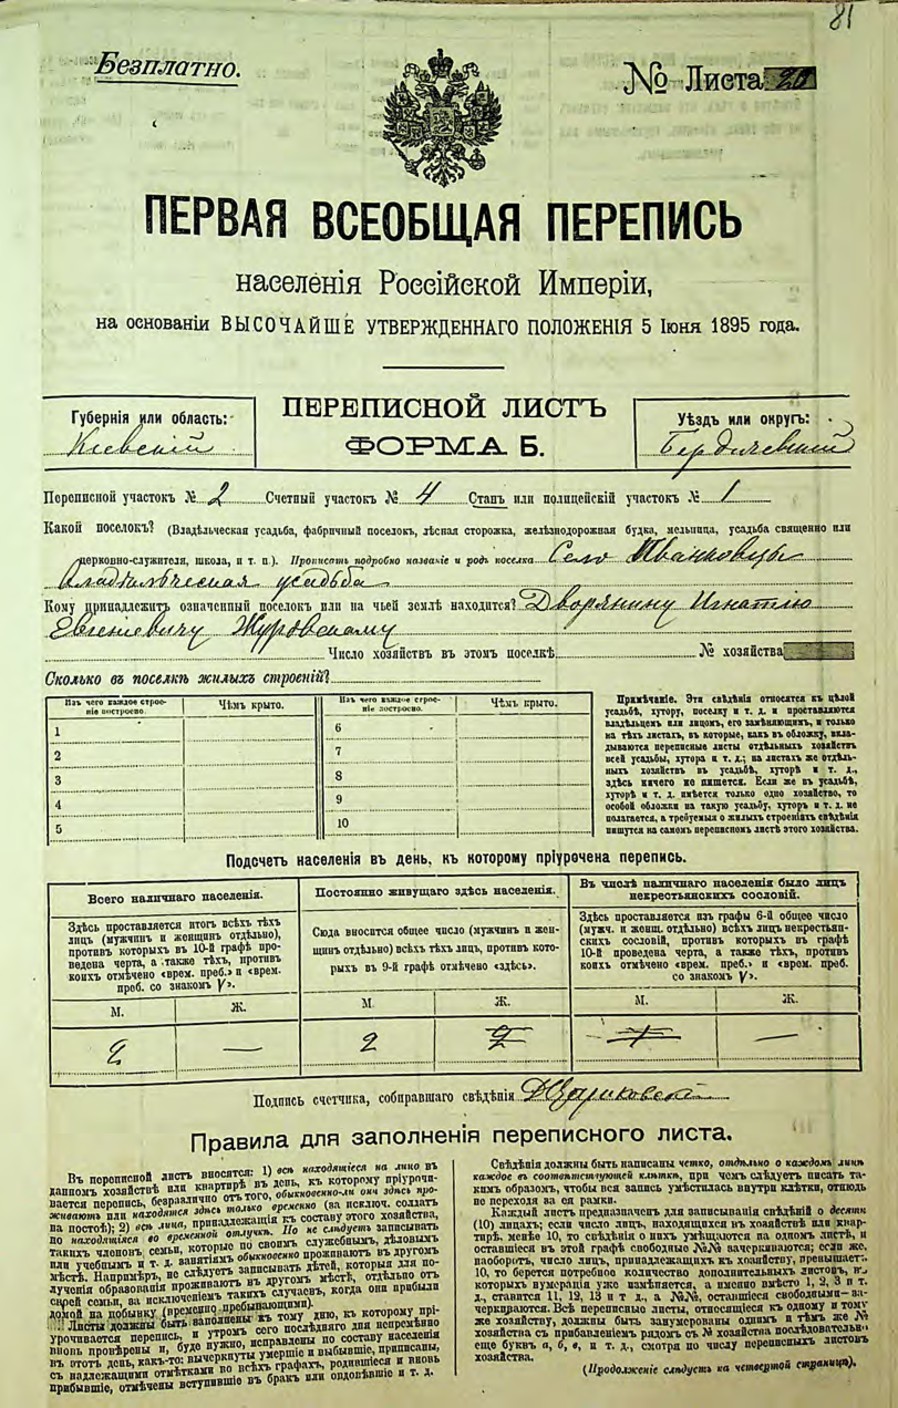 81
Безплатно.
№ Листа 20
ПЕРВАЯ ВСЕОБЩАЯ ПЕРЕПИСЬ
населенія Россійской Имперіи,
на основаніи ВЫСОЧАЙШЕ УТВЕРЖДЕННАГО ПОЛОЖЕНІЯ 5 Іюня 1895 года.
Губернія или область:
Кіевскій
ПЕРЕПИСНОЙ ЛИСТЪ
ФОРМА Б.
Уѣздъ или округъ:
Бердичевскій
Переписной участокъ № 2 Счетный участокъ № 4 Станъ или полицейскій участокъ № 1
Какой поселокъ? (Владѣльческая усадьба, фабричный поселокъ, лѣсная сторожка, желѣзнодорожная будка, мельница, усадьба священно или
церковно-служителя, школа, и т. п.). Прописать подробно названіе и родъ поселка Село Иванковцы
Владѣльческая усадьба
Кому принадлежитъ означенный поселокъ или на чьей землѣ находится? Дворянину Игнатію
Евгеніевичу Журовскому
Число хозяйствъ въ этомъ поселкѣ № хозяйства
Сколько въ поселкѣ жилыхъ строеній?
Изъ чего каждое строе-
ніе построено.
Чѣмъ крыто.
Изъ чего каждое строе-
ніе построено.
Чѣмъ крыто.
1
2
3
4
5
6
7
8
9
10
Примѣчаніе. Эти свѣдѣнія относятся къ цѣлой
усадьбѣ, хутору, поселку и т. д. и проставляются
владѣльцемъ или лицомъ, его замѣняющимъ, и только
на тѣхъ листахъ, въ которые, какъ въ обложку, вкла-
дываются переписные листы отдѣльныхъ хозяйствъ
всей усадьбы, хутора и т. д.; на листахъ же отдѣль-
ныхъ хозяйствъ въ усадьбѣ, хуторѣ и т. д.,
здѣсь ничего не пишется. Если же въ усадьбѣ,
хуторѣ и т. д. имѣется только одно хозяйство, то
особой обложки на такую усадьбу, хуторъ и т. д. не
полагается, а требуемыя о жилыхъ строеніяхъ свѣдѣнія
пишутся на самомъ переписномъ листѣ этого хозяйства.
Подсчетъ населенія въ день, къ которому пріурочена перепись.
Всего наличнаго населенія.
Здѣсь проставляется итогъ всѣхъ тѣхъ
лицъ (мужчинъ и женщинъ отдѣльно),
противъ которыхъ въ 10-й графѣ про-
ведена черта, а также тѣхъ, противъ
коихъ отмѣчено «врем. преб.» и «врем.
преб. со знакомъ V».
М. Ж.
2 —
Постоянно живущаго здѣсь населенія.
Сюда вносится общее число (мужчинъ и жен-
щинъ отдѣльно) всѣхъ тѣхъ лицъ, противъ кото-
рыхъ въ 9-й графѣ отмѣчено «здѣсь».
М. Ж.
2 2
Въ числѣ наличнаго населенія было лицъ
некрестьянскихъ сословій.
Здѣсь проставляется изъ графы 6-й общее число
(мужч. и женщ. отдѣльно) всѣхъ лицъ некрестьян-
скихъ сословій, противъ которыхъ въ графѣ
10-й проведена черта, а также тѣхъ, противъ
коихъ отмѣчено «врем. преб.» и «врем. преб.
со знакомъ V».
М. Ж.
1 —
Подпись счетчика, собиравшаго свѣдѣнія
Правила для заполненія переписного листа.
Въ переписной листъ вносятся: 1) всѣ находящіеся на лицо въ
данномъ хозяйствѣ или квартирѣ въ день, къ которому пріурочи-
вается перепись, безразлично отъ того, обыкновенно-ли они здѣсь про-
живаютъ или находятся здѣсь только временно (за исключ. солдатъ
на постоѣ); 2) всѣ лица, принадлежащія къ составу этого хозяйства,
но находящіяся во временной отлучкѣ. Но не слѣдуетъ записывать
такихъ членовъ семьи, которые по своимъ служебнымъ, дѣловымъ
или учебнымъ и т. д. занятіямъ обыкновенно проживаютъ въ другомъ
мѣстѣ. Напримѣръ, не слѣдуетъ записывать дѣтей, которыя для по-
лученія образованія проживаютъ въ другомъ мѣстѣ, отдѣльно отъ
своей семьи, за исключеніемъ такихъ случаевъ, когда они прибыли
домой на побывку (временно пребывающими).
!!! Листы должны быть заполнены къ тому дню, къ которому прі-
урочивается перепись, и утромъ сего послѣдняго дня непремѣнно
вновь провѣрены и, буде нужно, исправлены по составу населенія
въ этотъ день, какъ-то: вычеркнуты умершіе и выбывшіе, приписаны,
съ надлежащими отмѣтками во всѣхъ графахъ, родившіеся и вновь
прибывшіе, отмѣчены вступившіе въ бракъ или овдовѣвшіе и т. д.
Свѣдѣнія должны быть написаны четко, отдѣльно о каждомъ лицѣ
каждое въ соотвѣтствующей клѣткѣ, при чемъ слѣдуетъ писать та-
кимъ образомъ, чтобы вся запись умѣстилась внутри клѣтки, отнюдь
не переходя за ея рамки.
Каждый листъ предназначенъ для записыванія свѣдѣній о десяти
(10) лицахъ; если число лицъ, находящихся въ хозяйствѣ или квар-
тирѣ, менѣе 10, то свѣдѣнія о нихъ умѣщаются на одномъ листѣ, и
оставшіеся въ этой графѣ свободные №№ вачеркиваются; если же,
наоборотъ, число лицъ, принадлежащихъ къ хозяйству, превышаетъ
10, то берется потребное количество дополнительныхъ листовъ, на
которыхъ нумерація уже измѣняется, а именно вмѣсто 1, 2, 3 и т.
д., ставится 11, 12, 13 и т д., а №№, оставшіеся свободными—за-
черкиваются. Всѣ переписные листы, относящіеся къ одному и тому
же хозяйству, должны быть занумерованы однимъ и тѣмъ же №
хозяйства съ прибавленіемъ рядомъ съ № хозяйства послѣдовательно
еще буквъ а, б, в, и т. д., смотря по числу переписныхъ листовъ
хозяйства.
(Продолженіе слѣдуетъ на четвертой страницѣ).